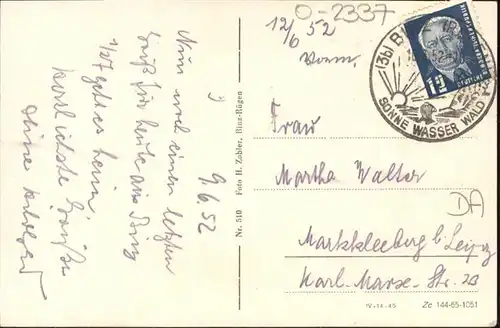 9.6.52
Nun noch einen letzten
Gruß für heute aus Binz
1/27 geht es heim.
Herzlichste Grüße
Deine
Nr. 510 Foto H. Zobler, Binz-Rügen
O-2337
12/6 52
Vorm.
(3b) B
12
SONNE WASSER WALD
Frau
Martha Walter
DA
Markkleeberg b. Leipzig
Karl-Marx-Str. 23
IV-14-45 Ze 144-65-1051